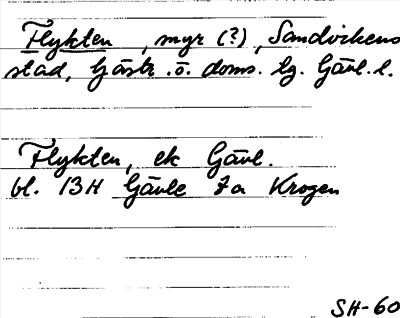 Flykten, myr (?), Sandvikens
stad, Gästr. ö. doms. lg. Gävl. l.
Flykten, ek Gävl.
bl. 13H Gävle 7a Krogen
SH-60